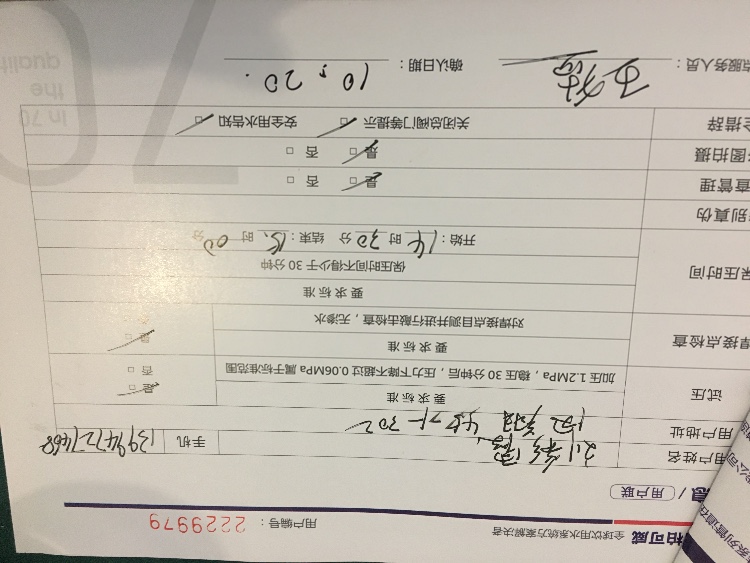 柏可威 全球饮用水系统方案解决者
用户编号：2229979
急 / 用户联
用户姓名 手机 13994727468
用户地址
试压
要求标准
加压1.2MPa，稳压30分钟后，压力下降不超过0.06MPa属于标准范围
是 □
否 □
焊接点检查
要求标准
对焊接点目测并进行敲击检查，无渗水
是 □
保压时间
要求标准
保压时间不得少于 30 分钟
开始：14 时 30 分 结束：15 时 00 分
别真伪
直管理 是 □ 否 □
图拍摄 是 □ 否 □
措辞 关闭总阀门等提示 □ 安全用水告知 □
服务人员： 确认日期：10.20.
in 70
the
qualit
70